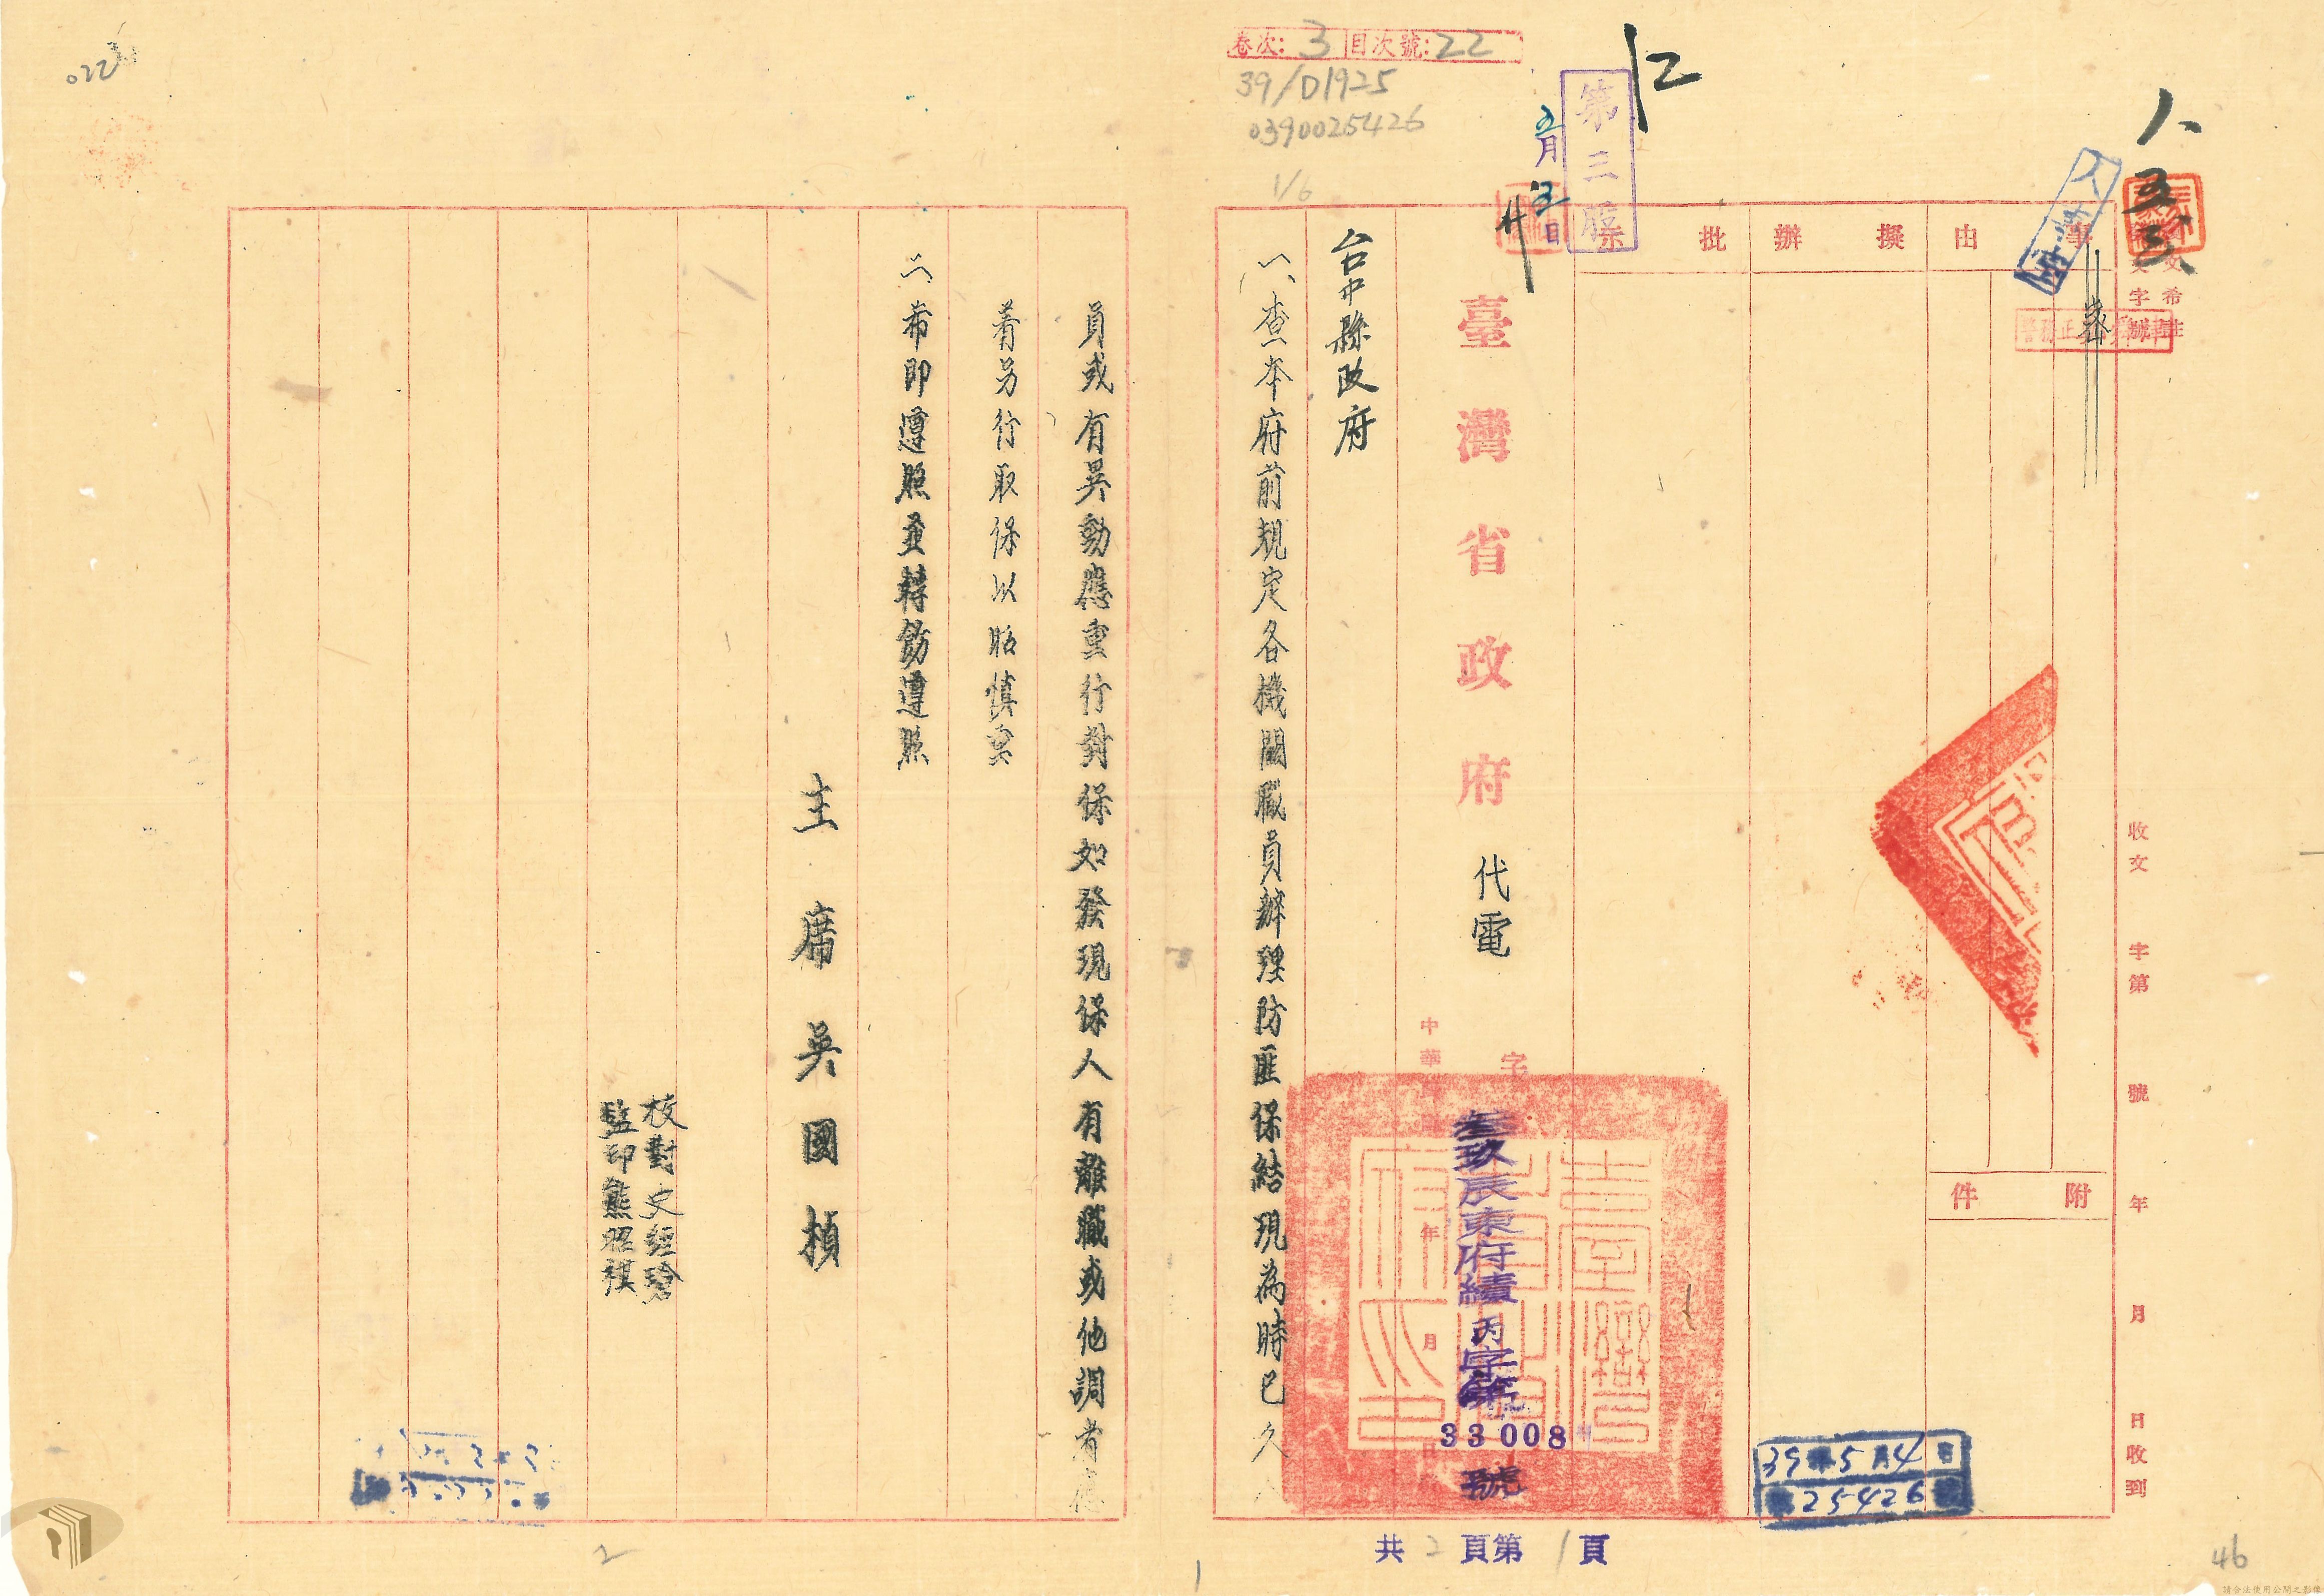 卷次：3 目次號：22
39/D1925
0390025426
1/6
022
12
第三股
五月
日
八、
五、
三、
文
字
希
註
收文 字第 號 年 月 日收到
事由
密
擬辦
批示
附件
臺灣省政府
代電
字
中華
年
月
叁玖辰東府績丙字第
33008
號
台中縣政府
一、查本府前規定各機關職員辦理防匪保結現為時已久
員或有異動應重行對保如發現保人有離職或他調者應
着另行取保以昭慎重
二、希即遵照並轉飭遵照
主席吳國楨
校對史經
監印熊昭祺
39年5月4日
25426
共2頁第1頁
1
2
46
請合法使用公開之影像